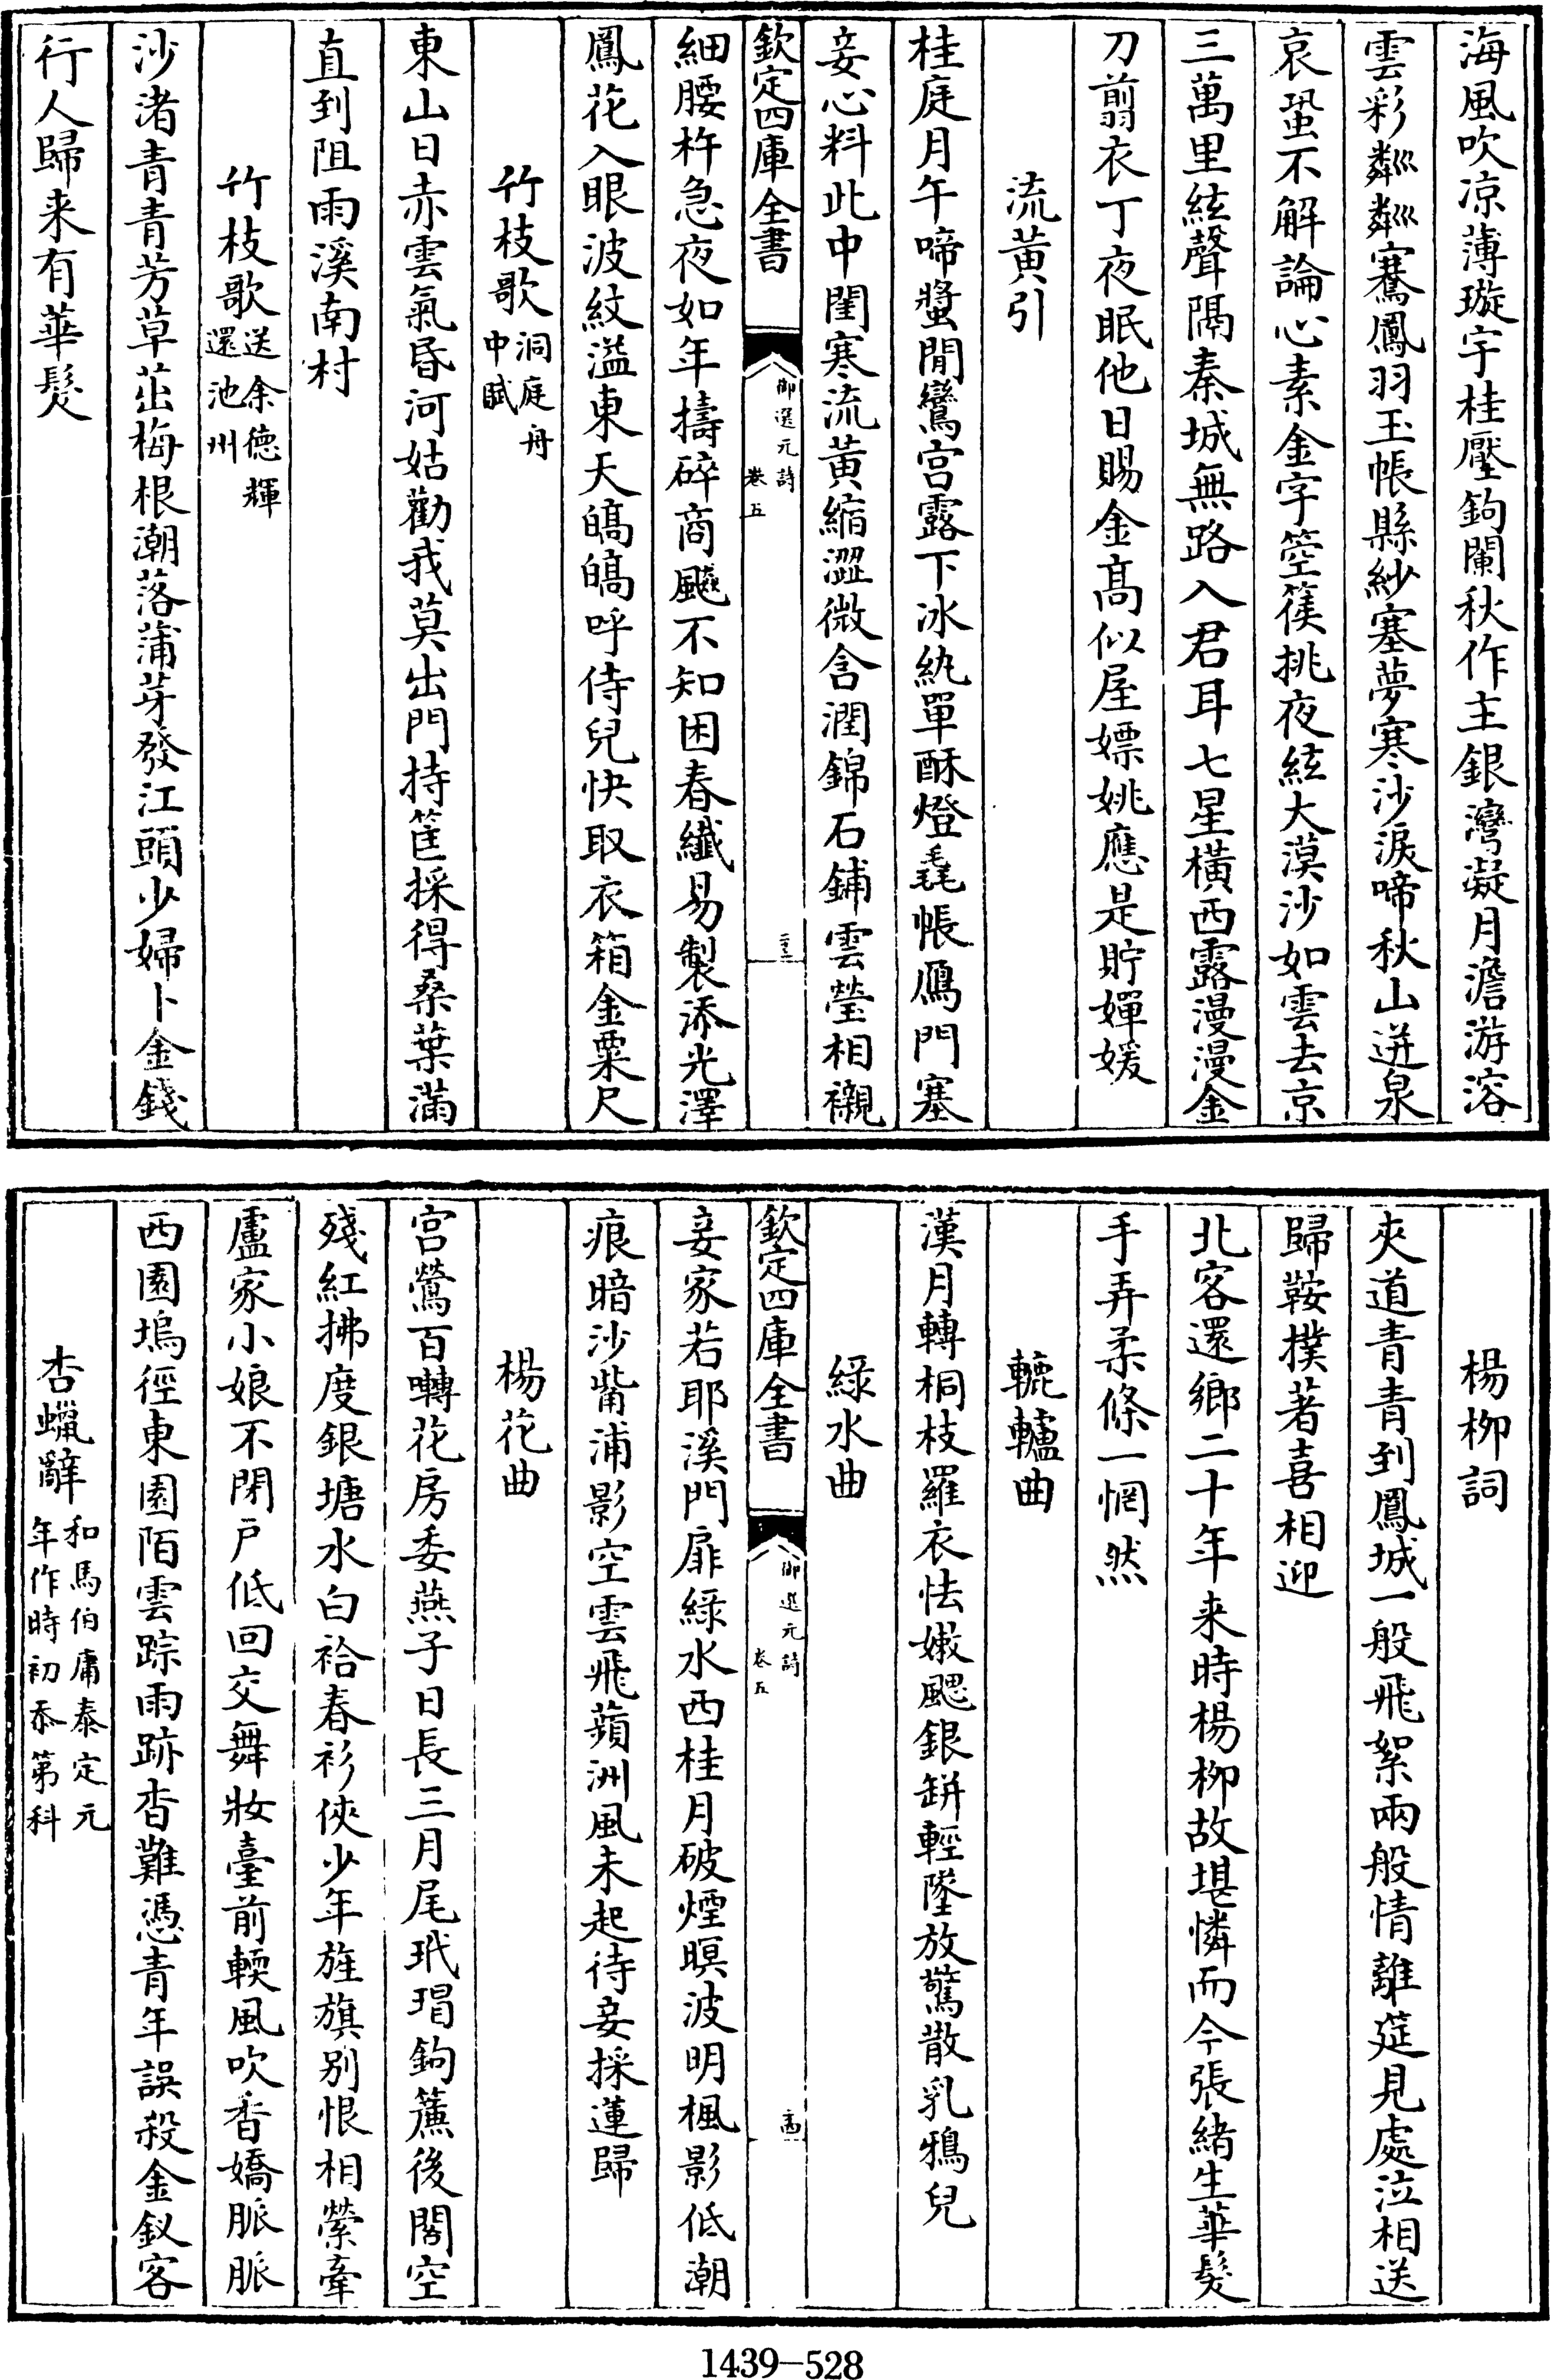 海風吹凉薄璇宇桂壓鉤闌秋作主銀灣凝月澹游溶
雲彩粼粼騫鳳羽玉帳縣紗塞夢寒沙淚啼秋山迸泉
哀蛩不解論心素金字箜篌挑夜絃大漠沙如雲去京
三萬里絃聲隔秦城無路入君耳七星橫西露漫漫金
刀翦衣丁夜眠他日賜金髙似屋嫖姚應是貯嬋媛
流黄引
桂庭月午啼螿閒鸞宫露下冰紈單酥燈毳帳鴈門塞
妾心料此中閨寒流黄縮澀微含潤錦石鋪雲瑩相襯
欽定四庫全書
御選元詩
卷五
二十三
細腰杵急夜如年擣碎商飈不知困春纖易製添光澤
鳳花入眼波紋溢東天皜皜呼侍兒快取衣箱金粟尺
竹枝歌洞庭舟
中賦
東山日赤雲氣昏河姑勸我莫出門持筐採得桑葉滿
直到阻雨溪南村
竹枝歌送余德輝
還池州
沙渚青青芳草茁梅根潮落蒲芽發江頭少婦卜金錢
行人歸来有華髮
楊柳詞
夾道青青到鳳城一般飛絮兩般情離筵見處泣相送
歸鞍撲著喜相迎
北客還鄉二十年来時楊柳故堪憐而今張緒生華髮
手弄柔條一惘然
轆轤曲
漢月轉桐枝羅衣怯嫩颸銀缾輕墜放驚散乳鴉兒
緑水曲
欽定四庫全書
御選元詩
卷五
二十四
妾家若耶溪門扉緑水西桂月破煙暝波明楓影低潮
痕暗沙觜浦影空雲飛蘋洲風未起待妾採蓮歸
楊花曲
宫鶯百囀花房委燕子日長三月尾玳瑁鉤簾後閣空
殘紅拂度銀塘水白袷春衫俠少年旌旗别恨相縈牽
盧家小娘不閉户低回交舞妝臺前輭風吹香嬌脈脈
西園塢徑東園陌雲踪雨跡杳難憑青年誤殺金釵客
杏蠟辭和馬伯庸泰定元
年作時初忝第科
1439—528